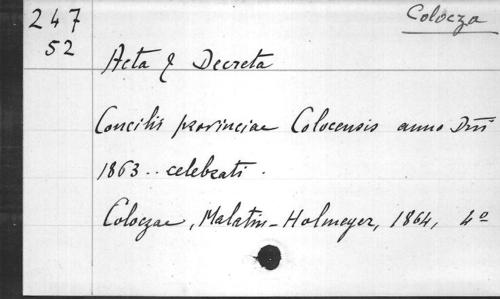 Colocza
247
52
Acta & Decreta
Concilii provinciae Colocensis anno Dni
1863.. celebrati.
Coloczae, Malatin-Holmeyer, 1864, 4º